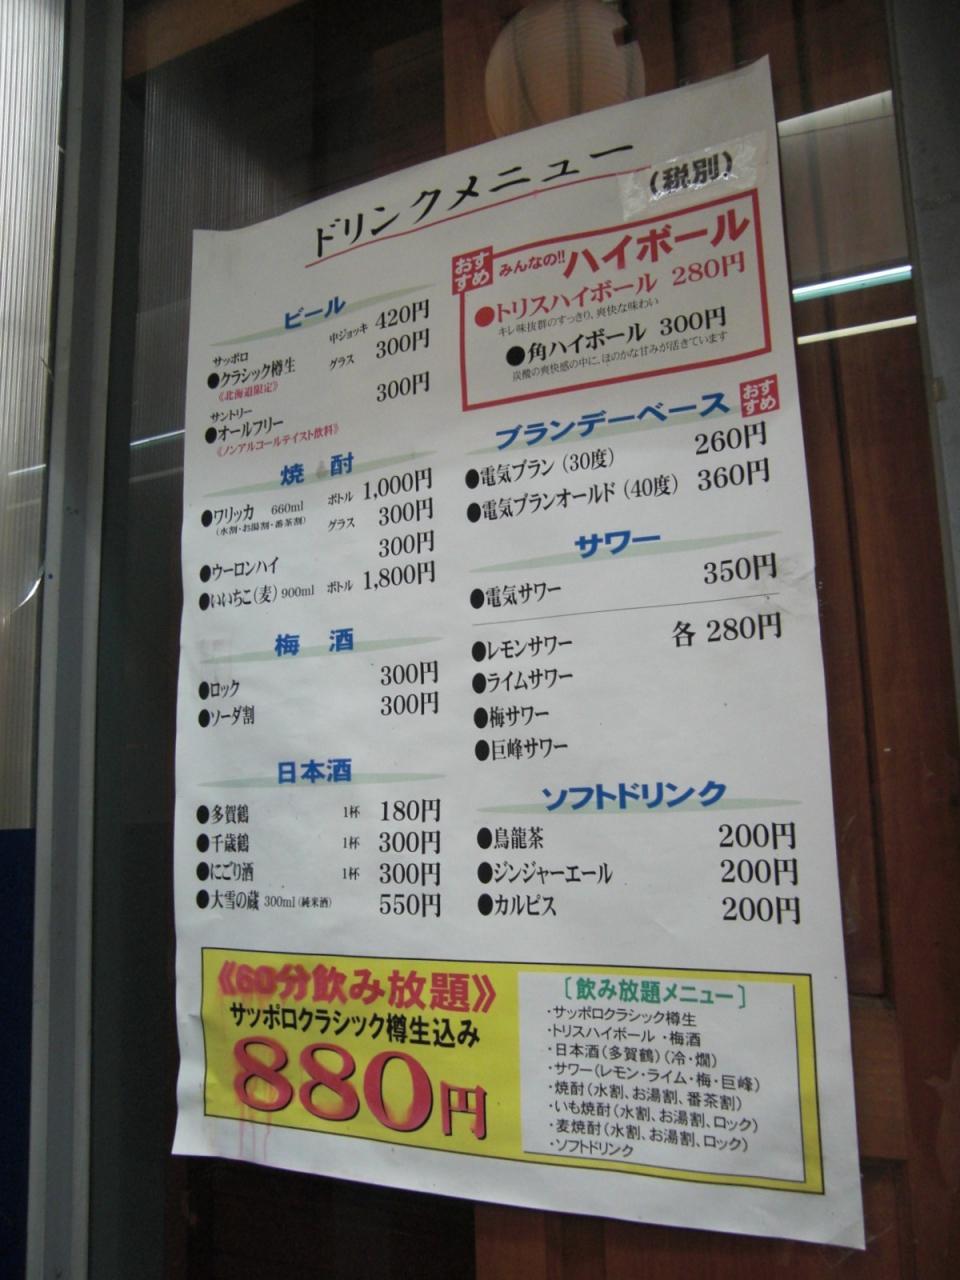 ドリンクメニュー
(税別)
ビール
サッポロ
●クラシック樽生 中ジョッキ 420円
《北海道限定》 グラス 300円
サントリー
●オールフリー 300円
《ノンアルコールテイスト飲料》
焼 酎
●ワリッカ 660ml ボトル 1,000円
(水割・お湯割・番茶割) グラス 300円
●ウーロンハイ 300円
●いいちこ(麦) 900ml ボトル 1,800円
梅 酒
●ロック 300円
●ソーダ割 300円
日本酒
●多賀鶴 1杯 180円
●千歳鶴 1杯 300円
●にごり酒 1杯 300円
●大雪の蔵 300ml(純米酒) 550円
おすすめ みんなの!!ハイボール
●トリスハイボール 280円
キレ味抜群のすっきり、爽快な味わい
●角ハイボール 300円
炭酸の爽快感の中に、ほのかな甘みが活きています
ブランデーベース おすすめ
●電気ブラン(30度) 260円
●電気ブランオールド(40度) 360円
サワー
●電気サワー 350円
●レモンサワー 各 280円
●ライムサワー
●梅サワー
●巨峰サワー
ソフトドリンク
●烏龍茶 200円
●ジンジャーエール 200円
●カルピス 200円
《60分飲み放題》
サッポロクラシック樽生込み
880円
[飲み放題メニュー]
・サッポロクラシック樽生
・トリスハイボール ・梅酒
・日本酒(多賀鶴)(冷・燗)
・サワー(レモン・ライム・梅・巨峰)
・焼酎(水割、お湯割、番茶割)
・いも焼酎(水割、お湯割、ロック)
・麦焼酎(水割、お湯割、ロック)
・ソフトドリンク